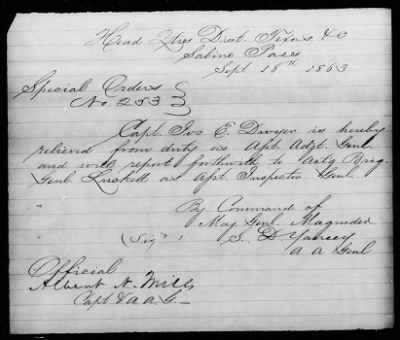 Head Qrs Dist. Texas &c
Sabine Pass
Sept 18th 1863
Special Orders
No 253
Capt. Jos E. Dwyer is hereby
relieved from duty as Asst. Adjt. Genl
and will report forthwith to Actg Brig
Genl Luckett as Asst Inspector Genl.
By Command of
Maj Genl Magruder
(Sig S. D Yancey
A A Genl
Official
Albert N. Mills
Capt & a a G.